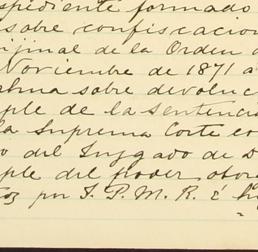 spediente formado
sobre confiscacion
rijinal de la Orden d
Noviembre de 1871 a
alma sobre devoluc
mple de la Sentencia
la Suprema Corte co
o del Juzgado de D
mple del poder otor
por I. P. M. R. É hi